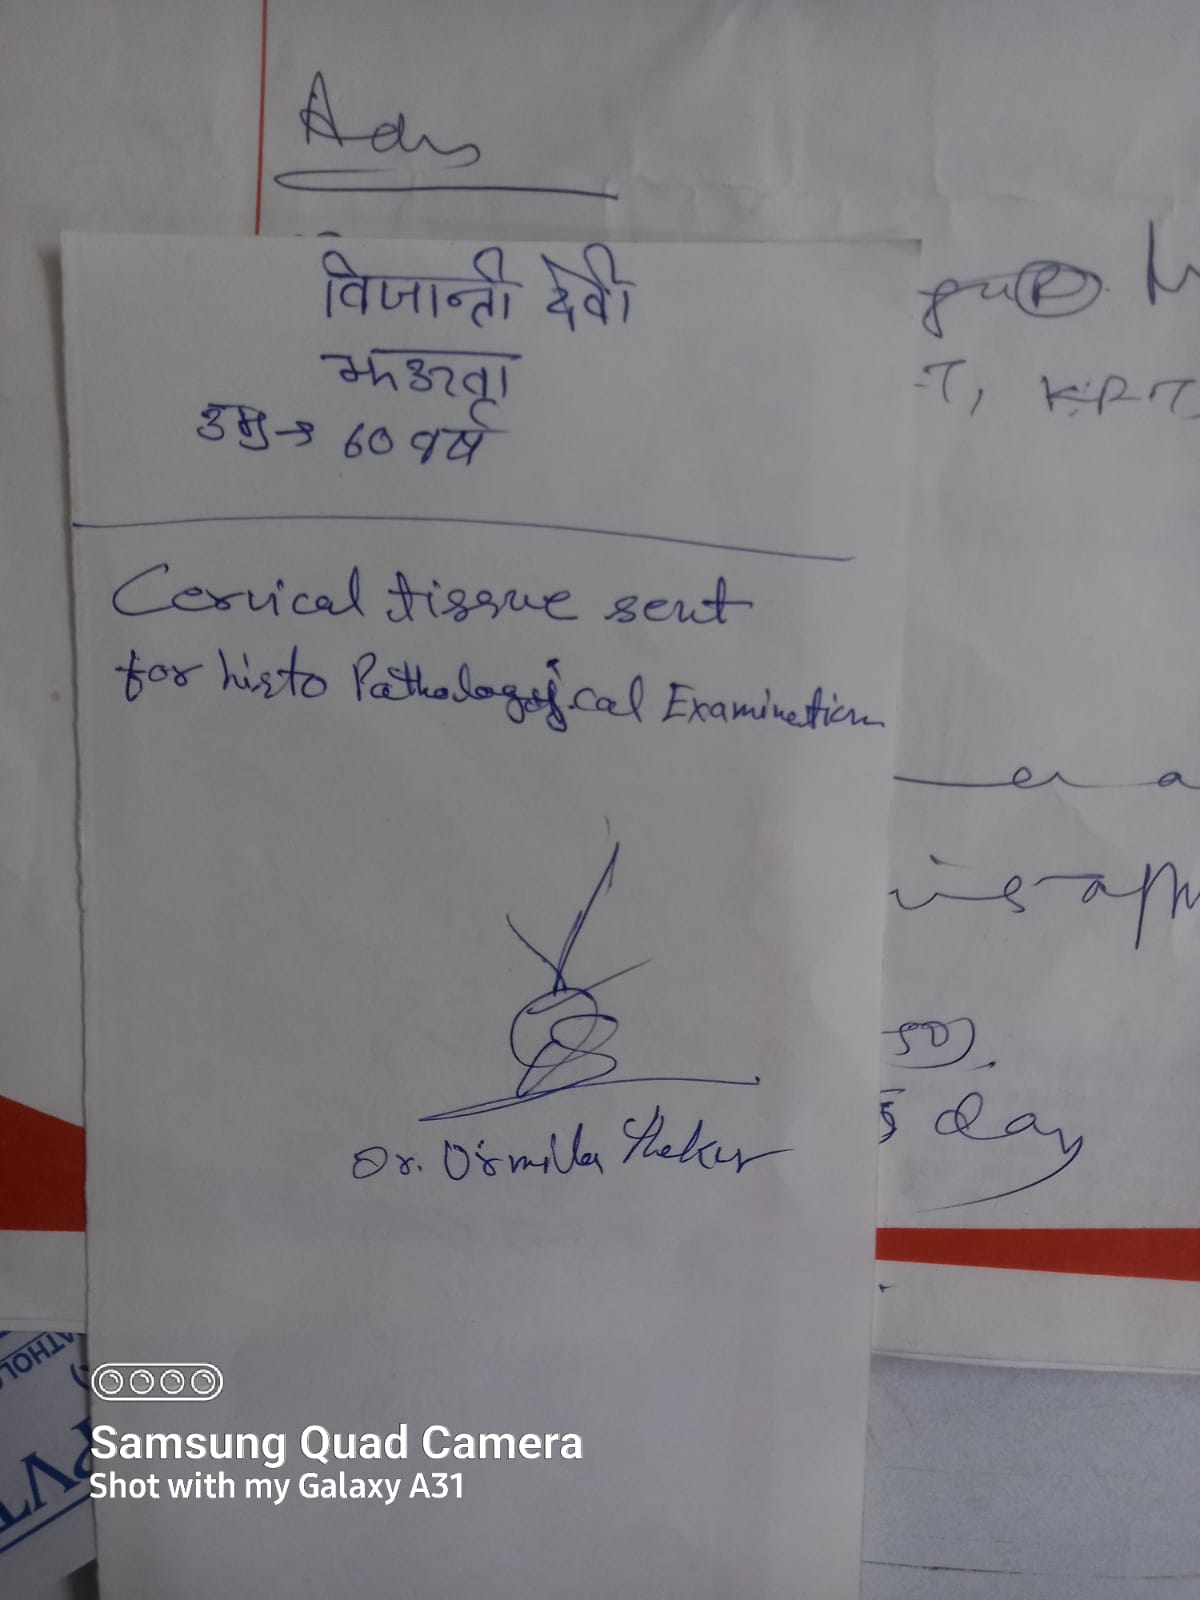 Adv
विजान्ती देवी
झउरवा
उम्र → 60 वर्ष
-T, KFT
Cervical tissue sent
for histo Pathological Examination
50).
5 day
Dr. Urmila Thakur
ATHOL
PVT
Samsung Quad Camera
Shot with my Galaxy A31